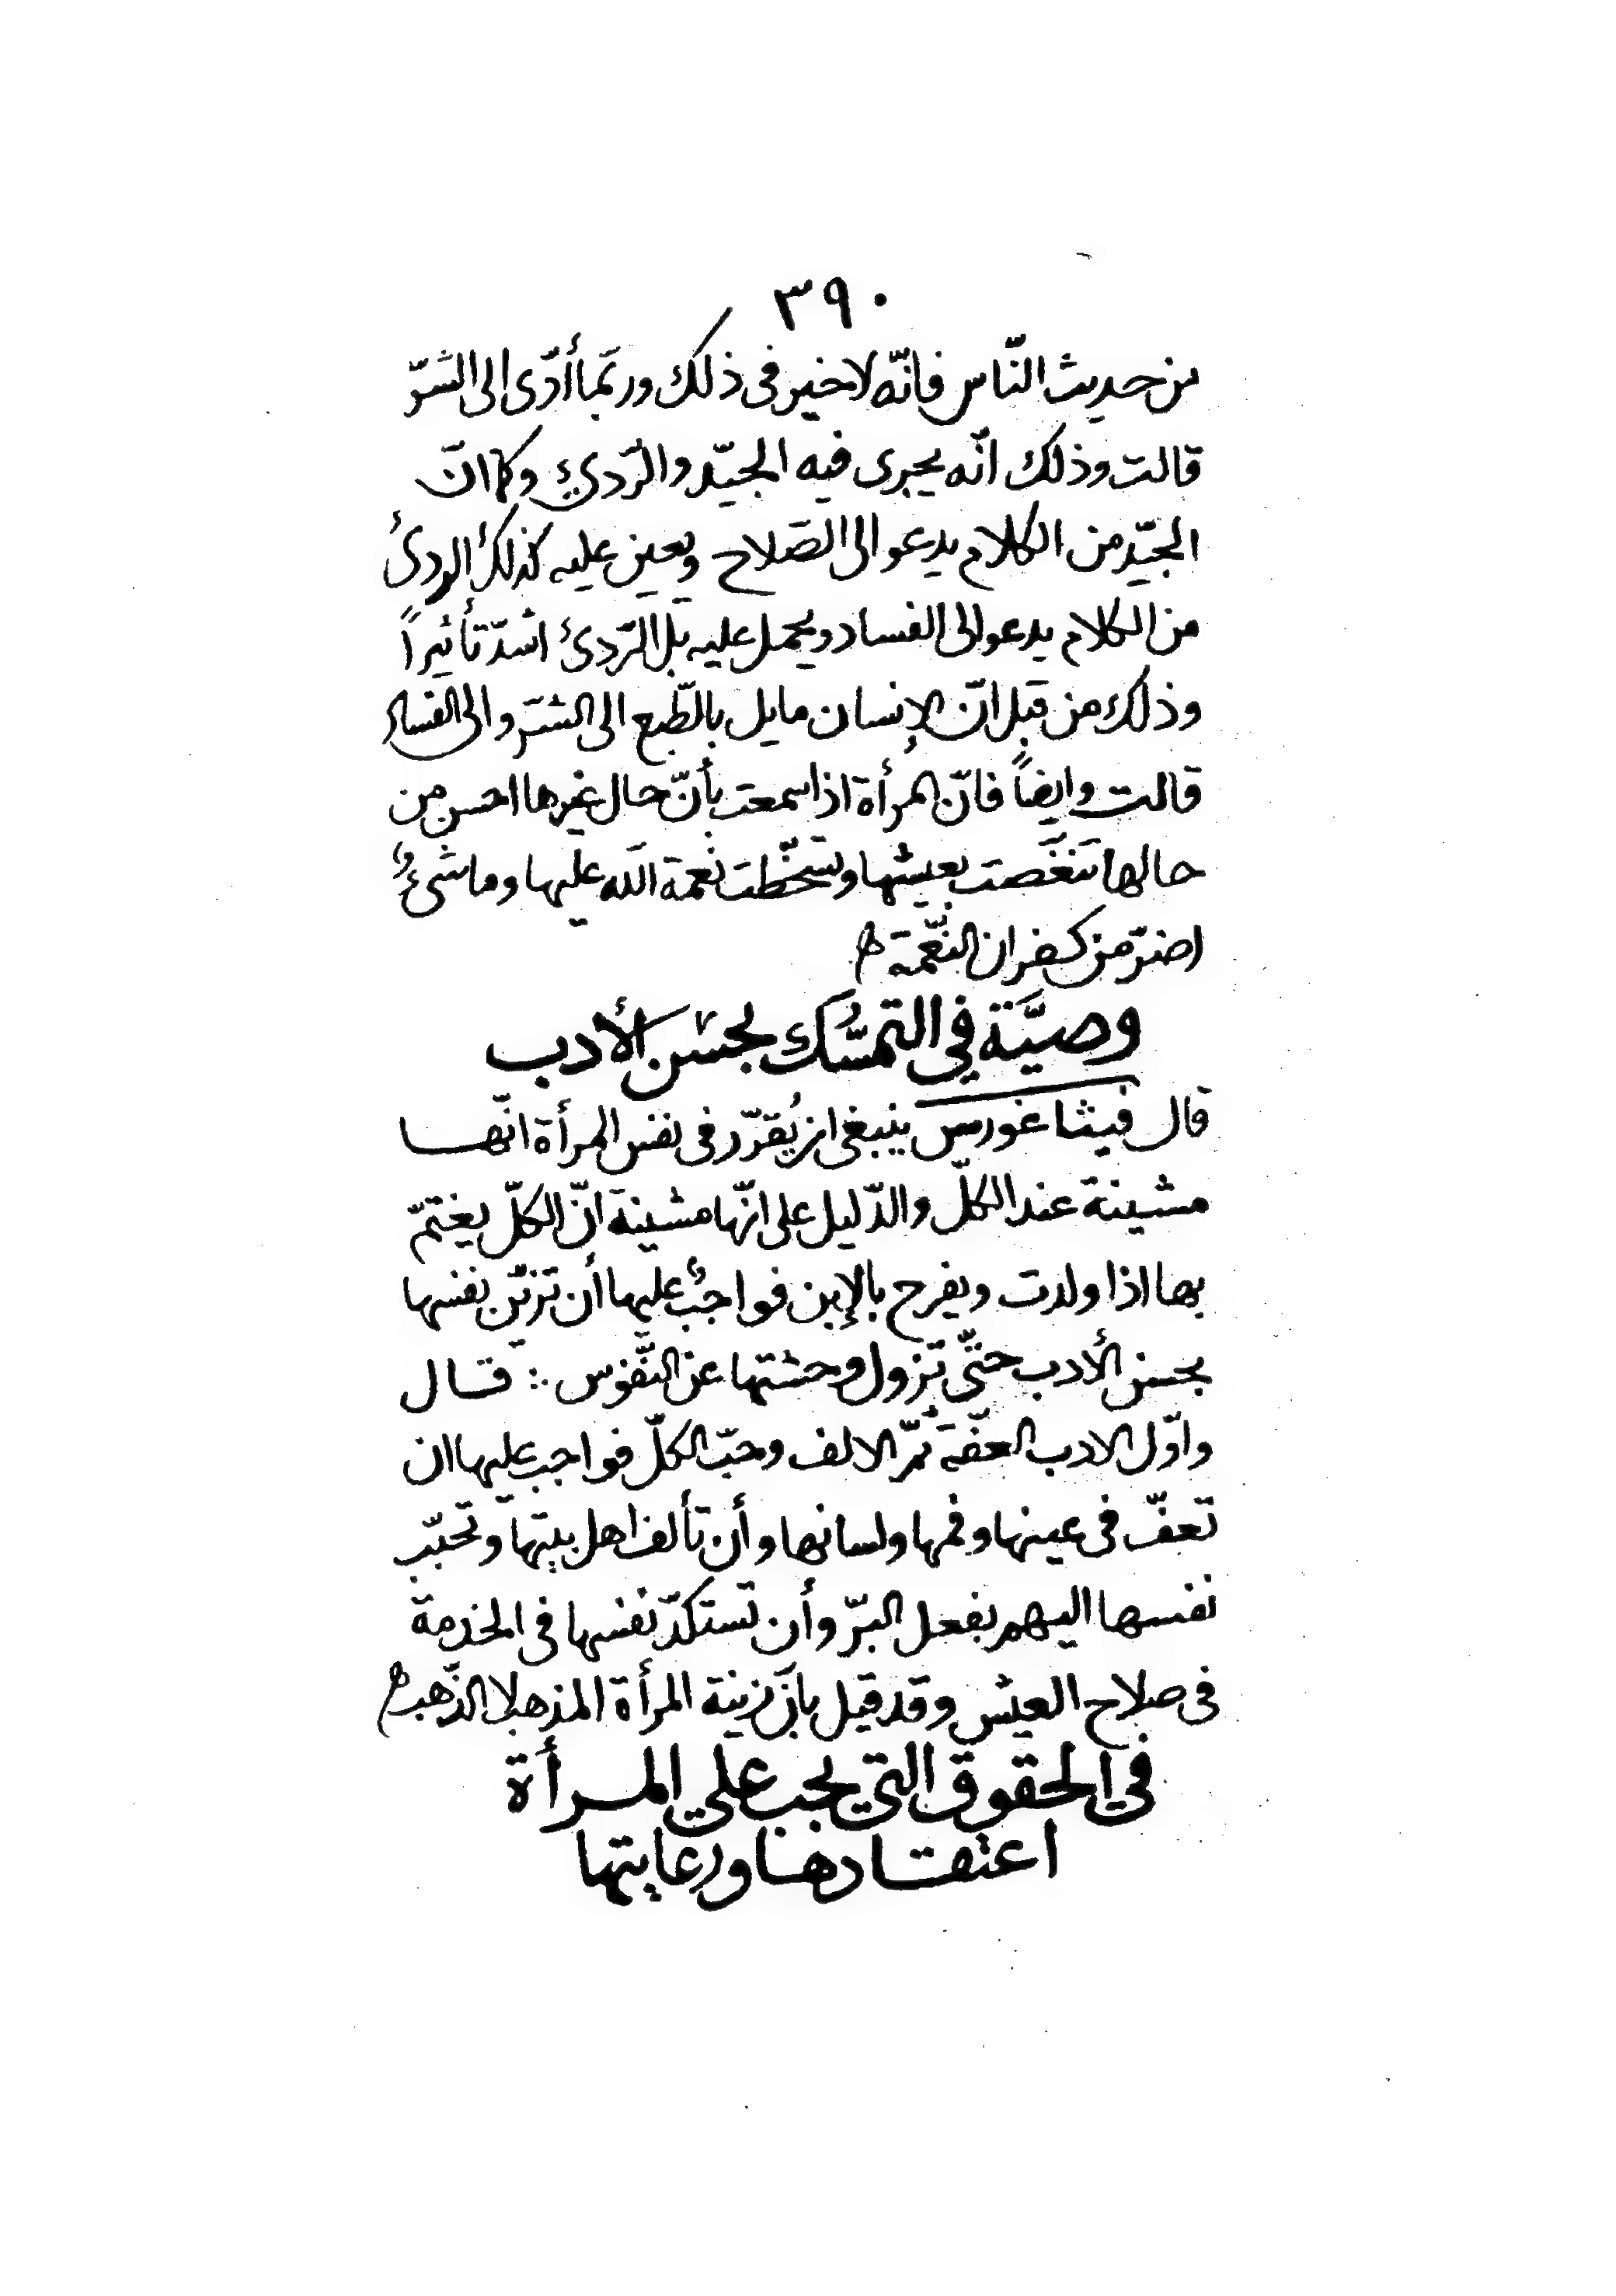 ٣٩٠
من حديث النّاس فانّه لا خير فى ذلك وربّما أدّى الى الشرّ
قالت وذلك انّه يجرى فيه الجيّد والرّديئ وكما انّ
الجيّد من الكلام يدعو الى الصّلاح ويعين عليه كذلك الردئ
من الكلام يدعو الى الفساد ويحمل عليه بل الرّدئ اشدّ تأثيراً
وذلك من قبل انّ الإنسان مايل بالطّبع الى الشرّ والى الفساد
قالت وايضاً فانّ المرأة اذا سمعت بأنّ حال غيرها احسن من
حالها تنغّصت بعيشها وتسخّطت نعمة اللّه عليها وما شئٌ
اضرّ من كفران النّعمة
وصيَّة في التمسُّك بحسن الأدب
قال فيثاغورس ينبغى ان يُقرّر فى نفس المرأة انّها
مشينة عند الكلّ والدّليل على انّها مشينة انّ الكلّ يغتمّ
بها اذا ولدت ويفرح بالإبن فواجبٌ عليها أن تزيّن نفسها
بحسن الأدب حتّى تزول وحشتها عن النّفوس ∴ قال
واوّل الادب العفّة ثمّ الالف وحبّ الكلّ فواجب عليها ان
تعفّ فى عينها وفمها ولسانها وأن تألف اهل بيتها وتحبّب
نفسها اليهم بفعل البرّ وأن تستكدّ نفسها فى الخدمة
فى صلاح العيش وقد قيل بانّ زينة المرأة المذهب لا الذّهب
في الحقوق التي يجب علي المرأة
اعتقادها ورعايتها